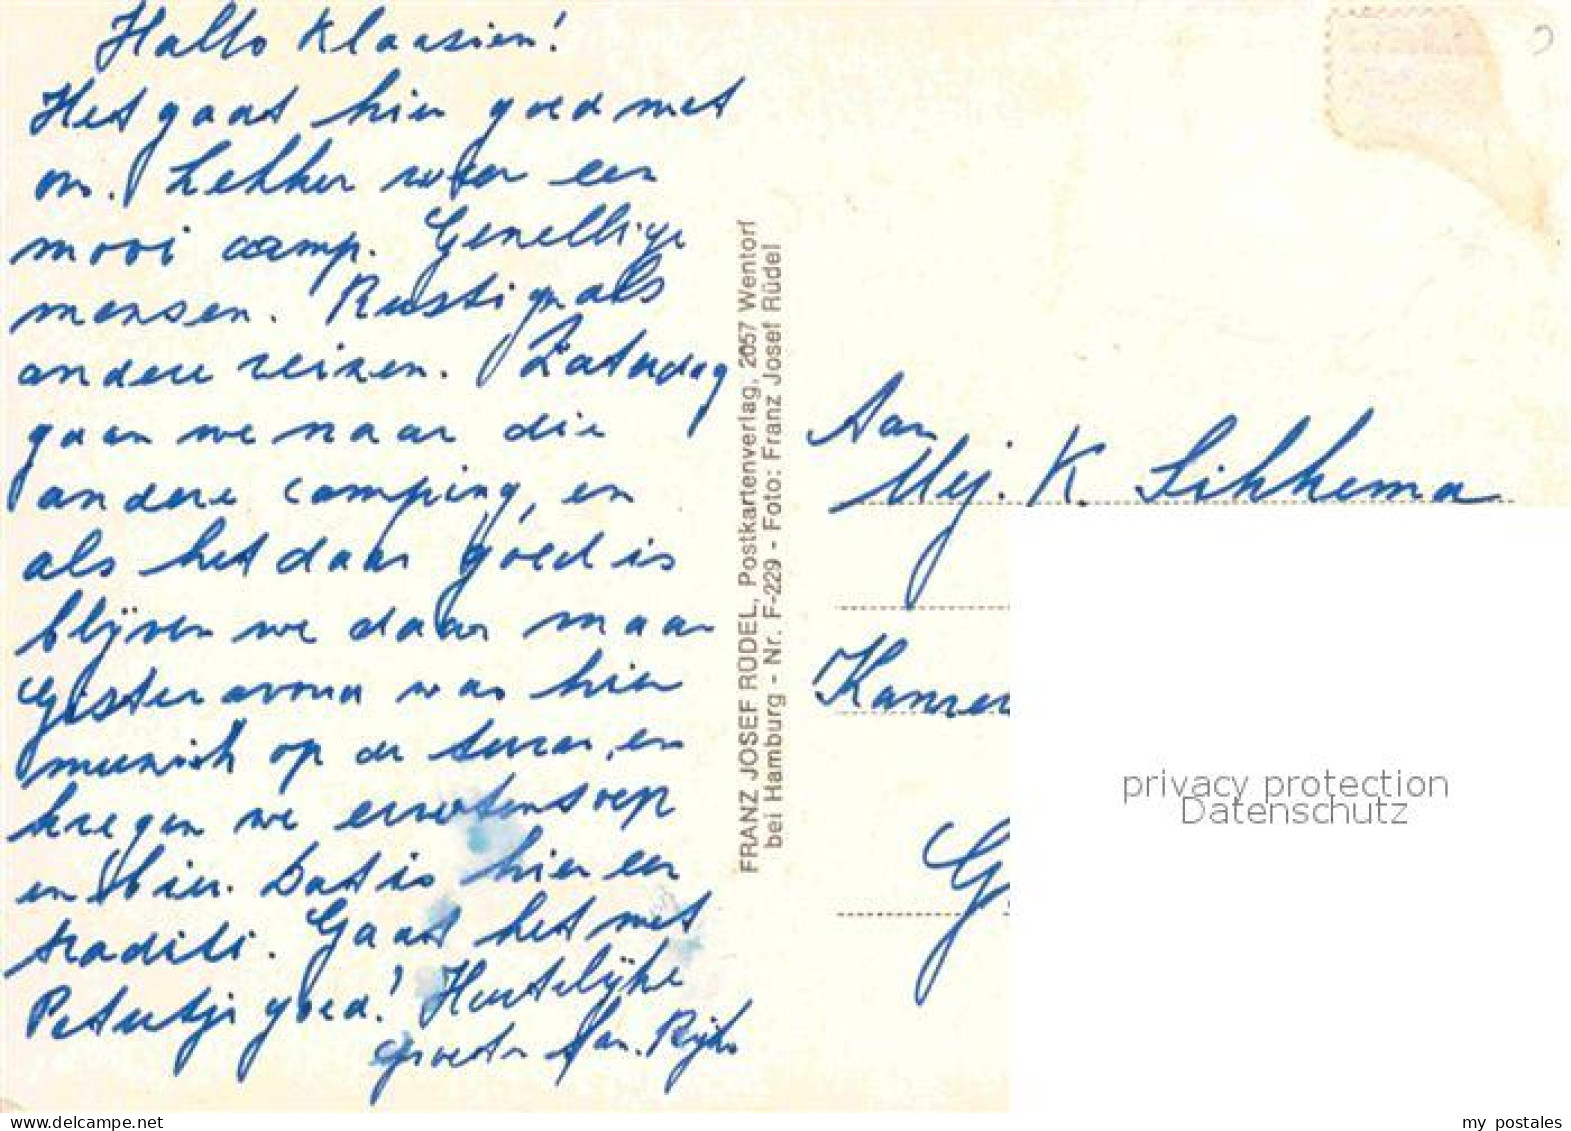 Hallo Klaasien!
Het gaat hier goed met
ons. Lekker weer een
mooi camp. Gezellige
mensen. Rustig als
andere reizen. Zaterdag
gaan we naar die
andere camping, en
als het daar goed is
blijven we daar maar
Gisteravond was hier
muziek op de terras, en
kregen we erwtensoep
en bier. Dat is hier een
traditi. Gaat het met
Petertje goed! Hartelijke
groeten fam. Rijks
FRANZ JOSEF RÜDEL, Postkartenverlag, 2057 Wentorf
bei Hamburg - Nr. F-229 - Foto: Franz Josef Rüdel
Aan
Mej. K. Sikkema
G
privacy protection
Datenschutz
www.delcampe.net
my_postales